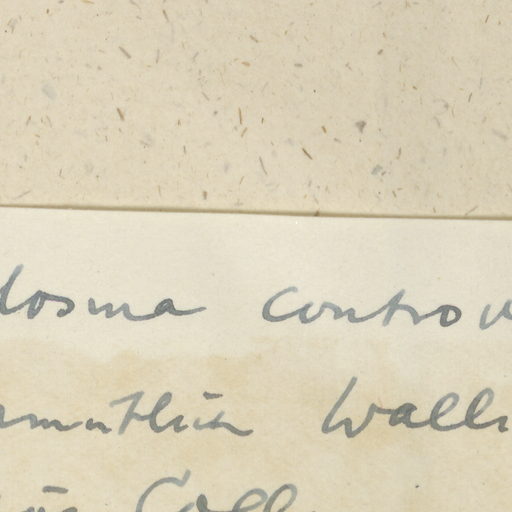 dosma controv
rmutlich Walli
Coll